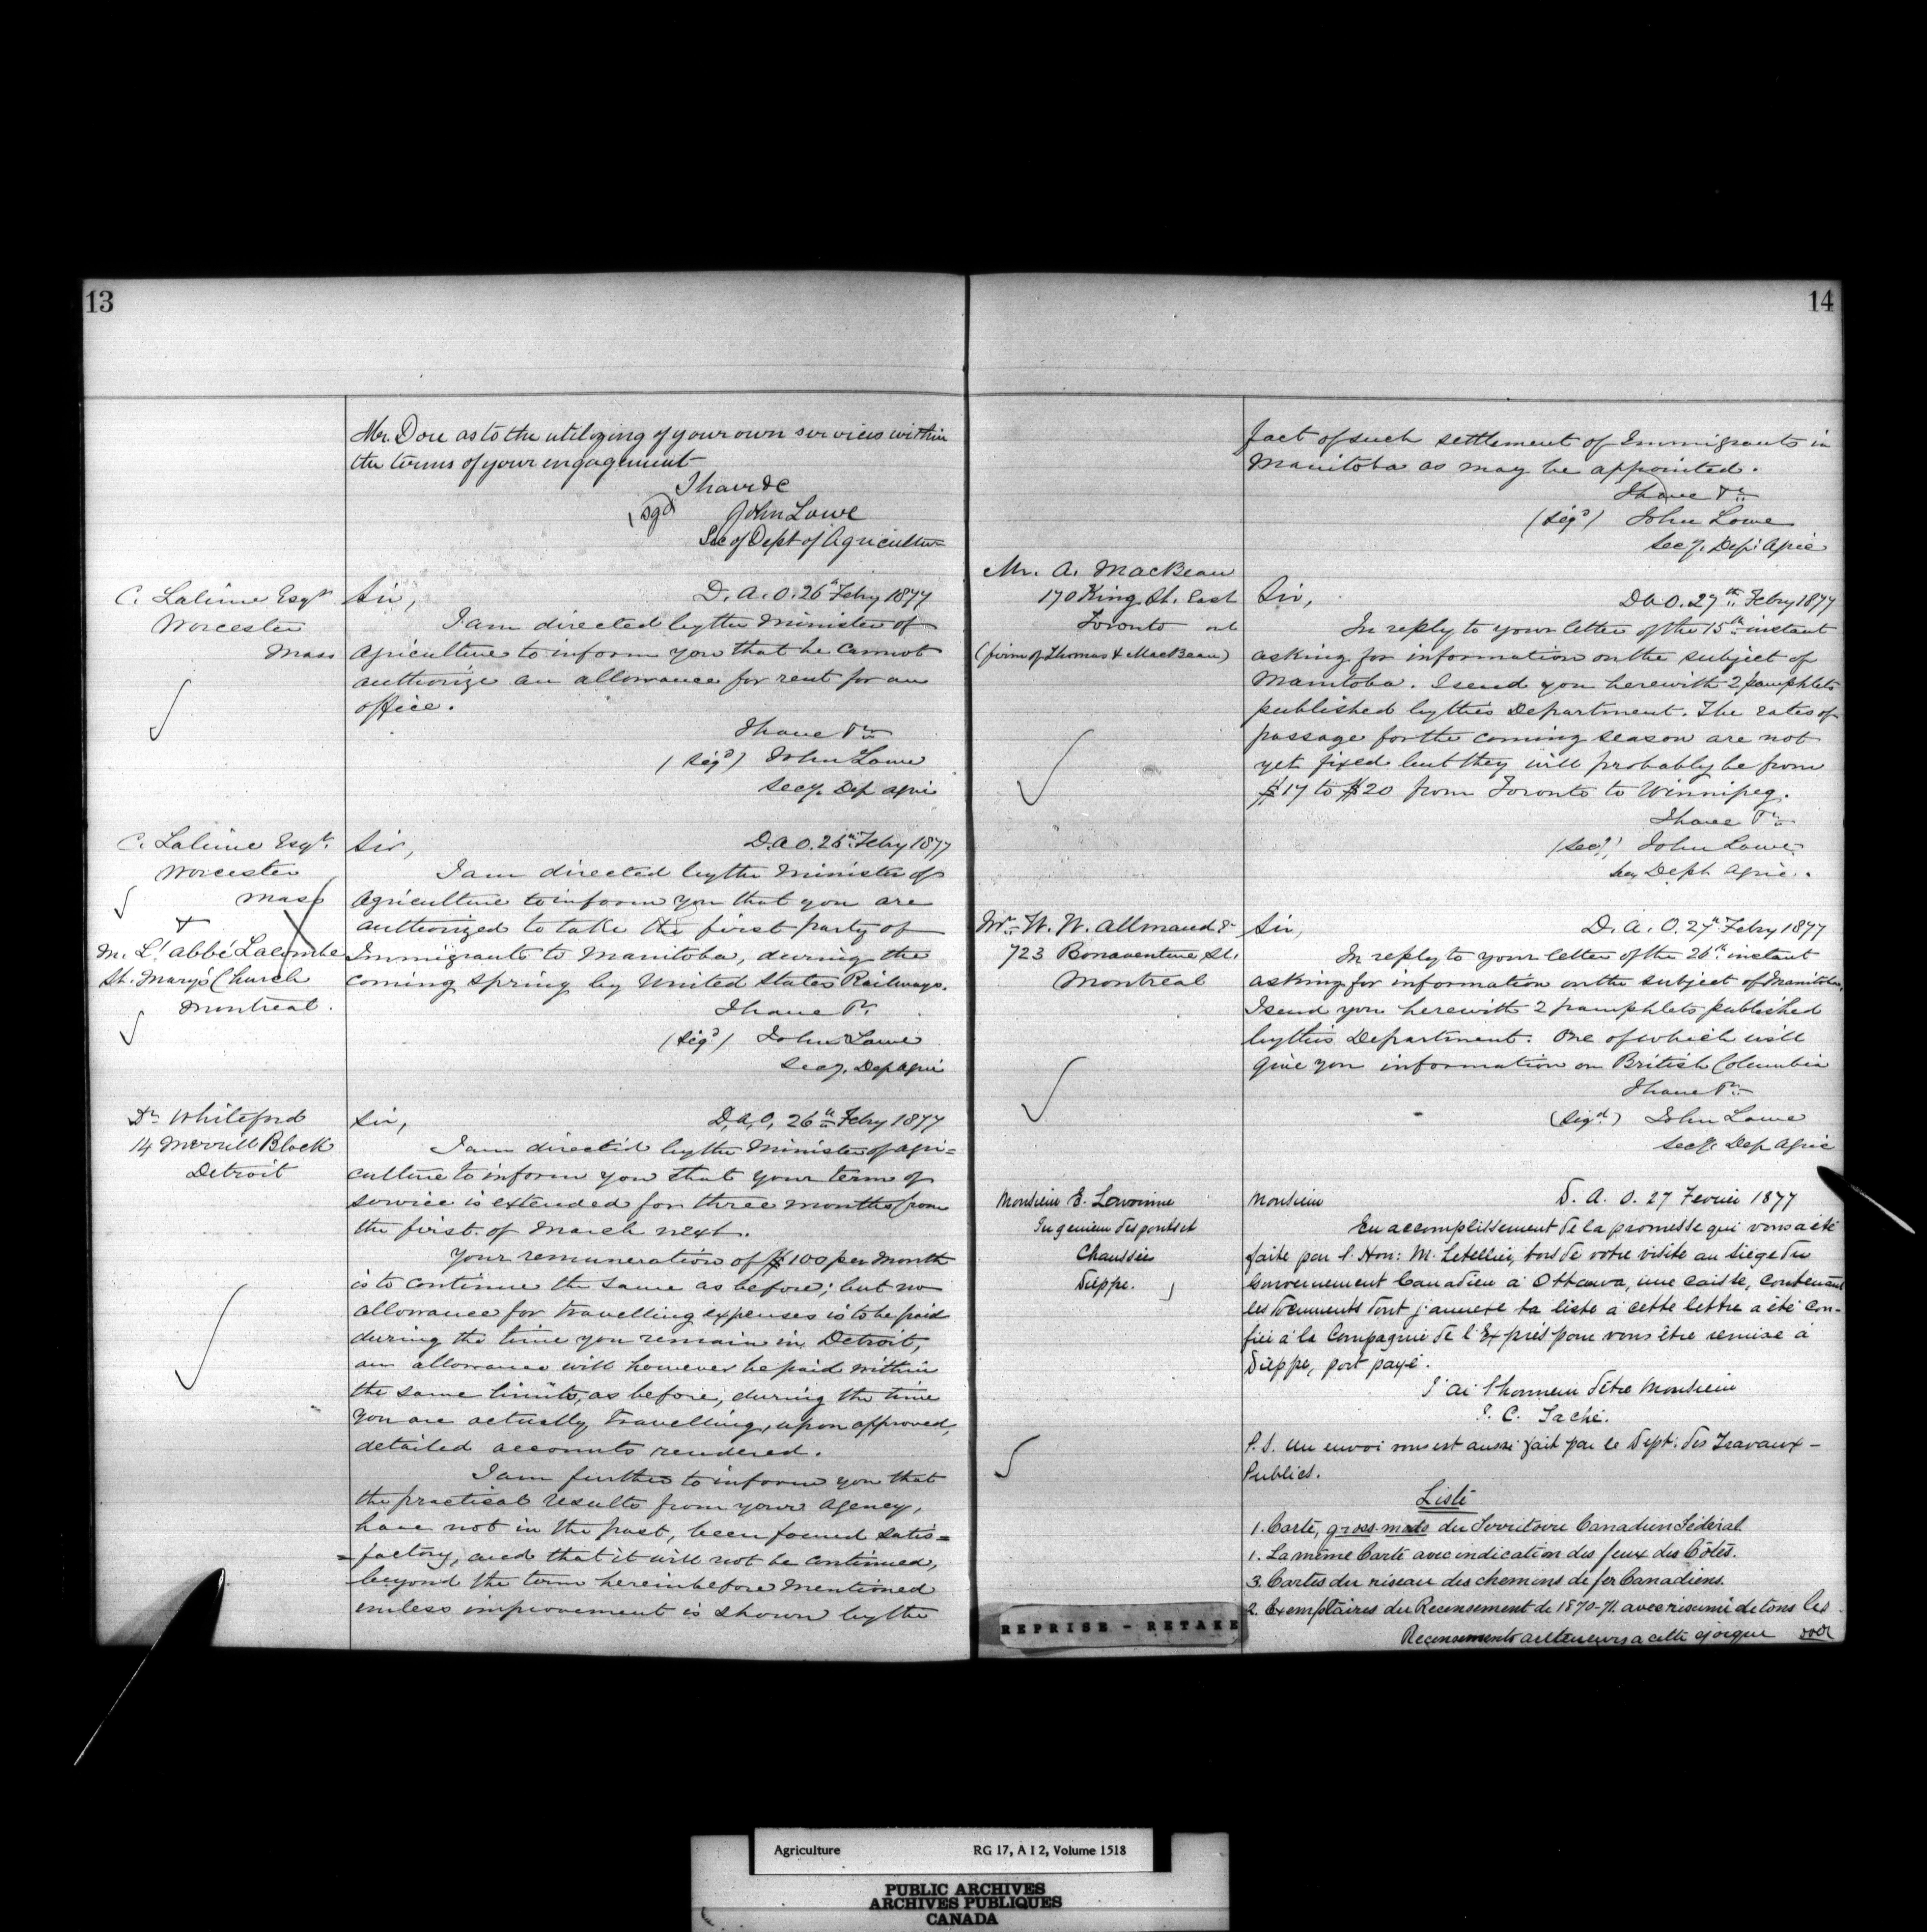 13
Mr. Dore as to the utilizing of your own services within
the terms of your engagement
I have &c
(sgd) John Lowe
Sec of Dept of Agriculture
C. Lalime Esqr
Worcester
Mass
Sir, D. A. O. 26th Feby 1877
I am directed by the Minister of
Agriculture to inform you that he cannot
authorize an allowance for rent for an
office.
I have &c
(Sigd) John Lowe
Secy. Dep Agri
C. Lalime Esqr.
Worcester
Mass
&
M. L'abbé Lacombe
St. Mary's Church
Montreal.
Sir, D. A O. 26th Feby 1877
I am directed by the Minister of
Agriculture to inform you that you are
authorized to take the first party of
Immigrants to Manitoba, during the
coming spring by United States Railways.
I have &c
(Sigd) John Lowe
Secy. Dep Agri
Dr Whiteford
14 Merrill Block
Detroit
Sir, D. A. O. 26th Feby 1877
I am directed by the Minister of Agri=
culture to inform you that your term of
service is extended for three months from
the first of March next.
Your remuneration of $100 per Month
is to continue the same as before; but no
allowance for travelling expenses is to be paid
during the time you remain in Detroit,
an allowance will however be paid within
the same limits, as before, during the time
you are actually travelling, upon approved,
detailed accounts rendered.
I am further to inform you that
the practical results from your Agency,
have not in the past, been found satis=
=factory, and that it will not be continued,
beyond the term hereinbefore mentioned
unless improvement is shown by the
14
fact of such settlement of Immigrants in
Manitoba as may be appointed.
I have &c
(Sigd) John Lowe
Secy. Dept Agric
Mr. A. MacBean
170 King St. East
Toronto ont
(firm of Thomas & MacBean)
Sir, D A O. 27th Feby 1877
In reply to your letter of the 15th instant
asking for information on the subject of
Manitoba. I send you herewith 2 pamphlets
published by this Department. The rates of
passage for the coming season are not
yet fixed but they will probably be from
$17 to $20 from Toronto to Winnipeg.
I have &c
John Lowe
Sec Dept Agric.
Mr. W. W. Allmand Jr
723 Bonaventure St.
Montreal
Sir, D. A. O. 27th Feby 1877
In reply to your letter of the 26th instant
asking for information on the subject of Manitoba,
I send you herewith 2 pamphlets published
by this Department. One of which will
give you information on British Columbia
I have &c
(Sigd) John Lowe
Secy. Dep Agric
Monsieur E. Lavoinne
Ingenieur des ponts et
Chaussées
Dieppe.
Monsieur D. A. O. 27 Fevrier 1877
En accomplissement de la promesse qui vous a été
faite par l'Hon: M. Letellier, lors de votre visite au siège du
Gouvernement Canadien à Ottawa, une caisse, contenant
les documents dont j'annexe la liste à cette lettre a été con-
fiée à la Compagnie de l'Exprés pour vous être remise à
Dieppe, port payé.
J'ai l'honneur d'être Monsieur
J. C. Taché.
P.S. Un envoi vous est aussi fait par le Dept: des Travaux-
Publics.
Liste
1. Carte, gross-modo du Territoire Canadien Fédéral
1. La même Carte avec indication des feux des Côtes.
3. Cartes du réseau des chemins de fer Canadiens.
2. Exemplaires du Recensement de 1870-71. avec résumé de tous les
Recensements antérieurs a cette époque
REPRISE - RETAKE
Agriculture RG 17, A I 2, Volume 1518
PUBLIC ARCHIVES
ARCHIVES PUBLIQUES
CANADA